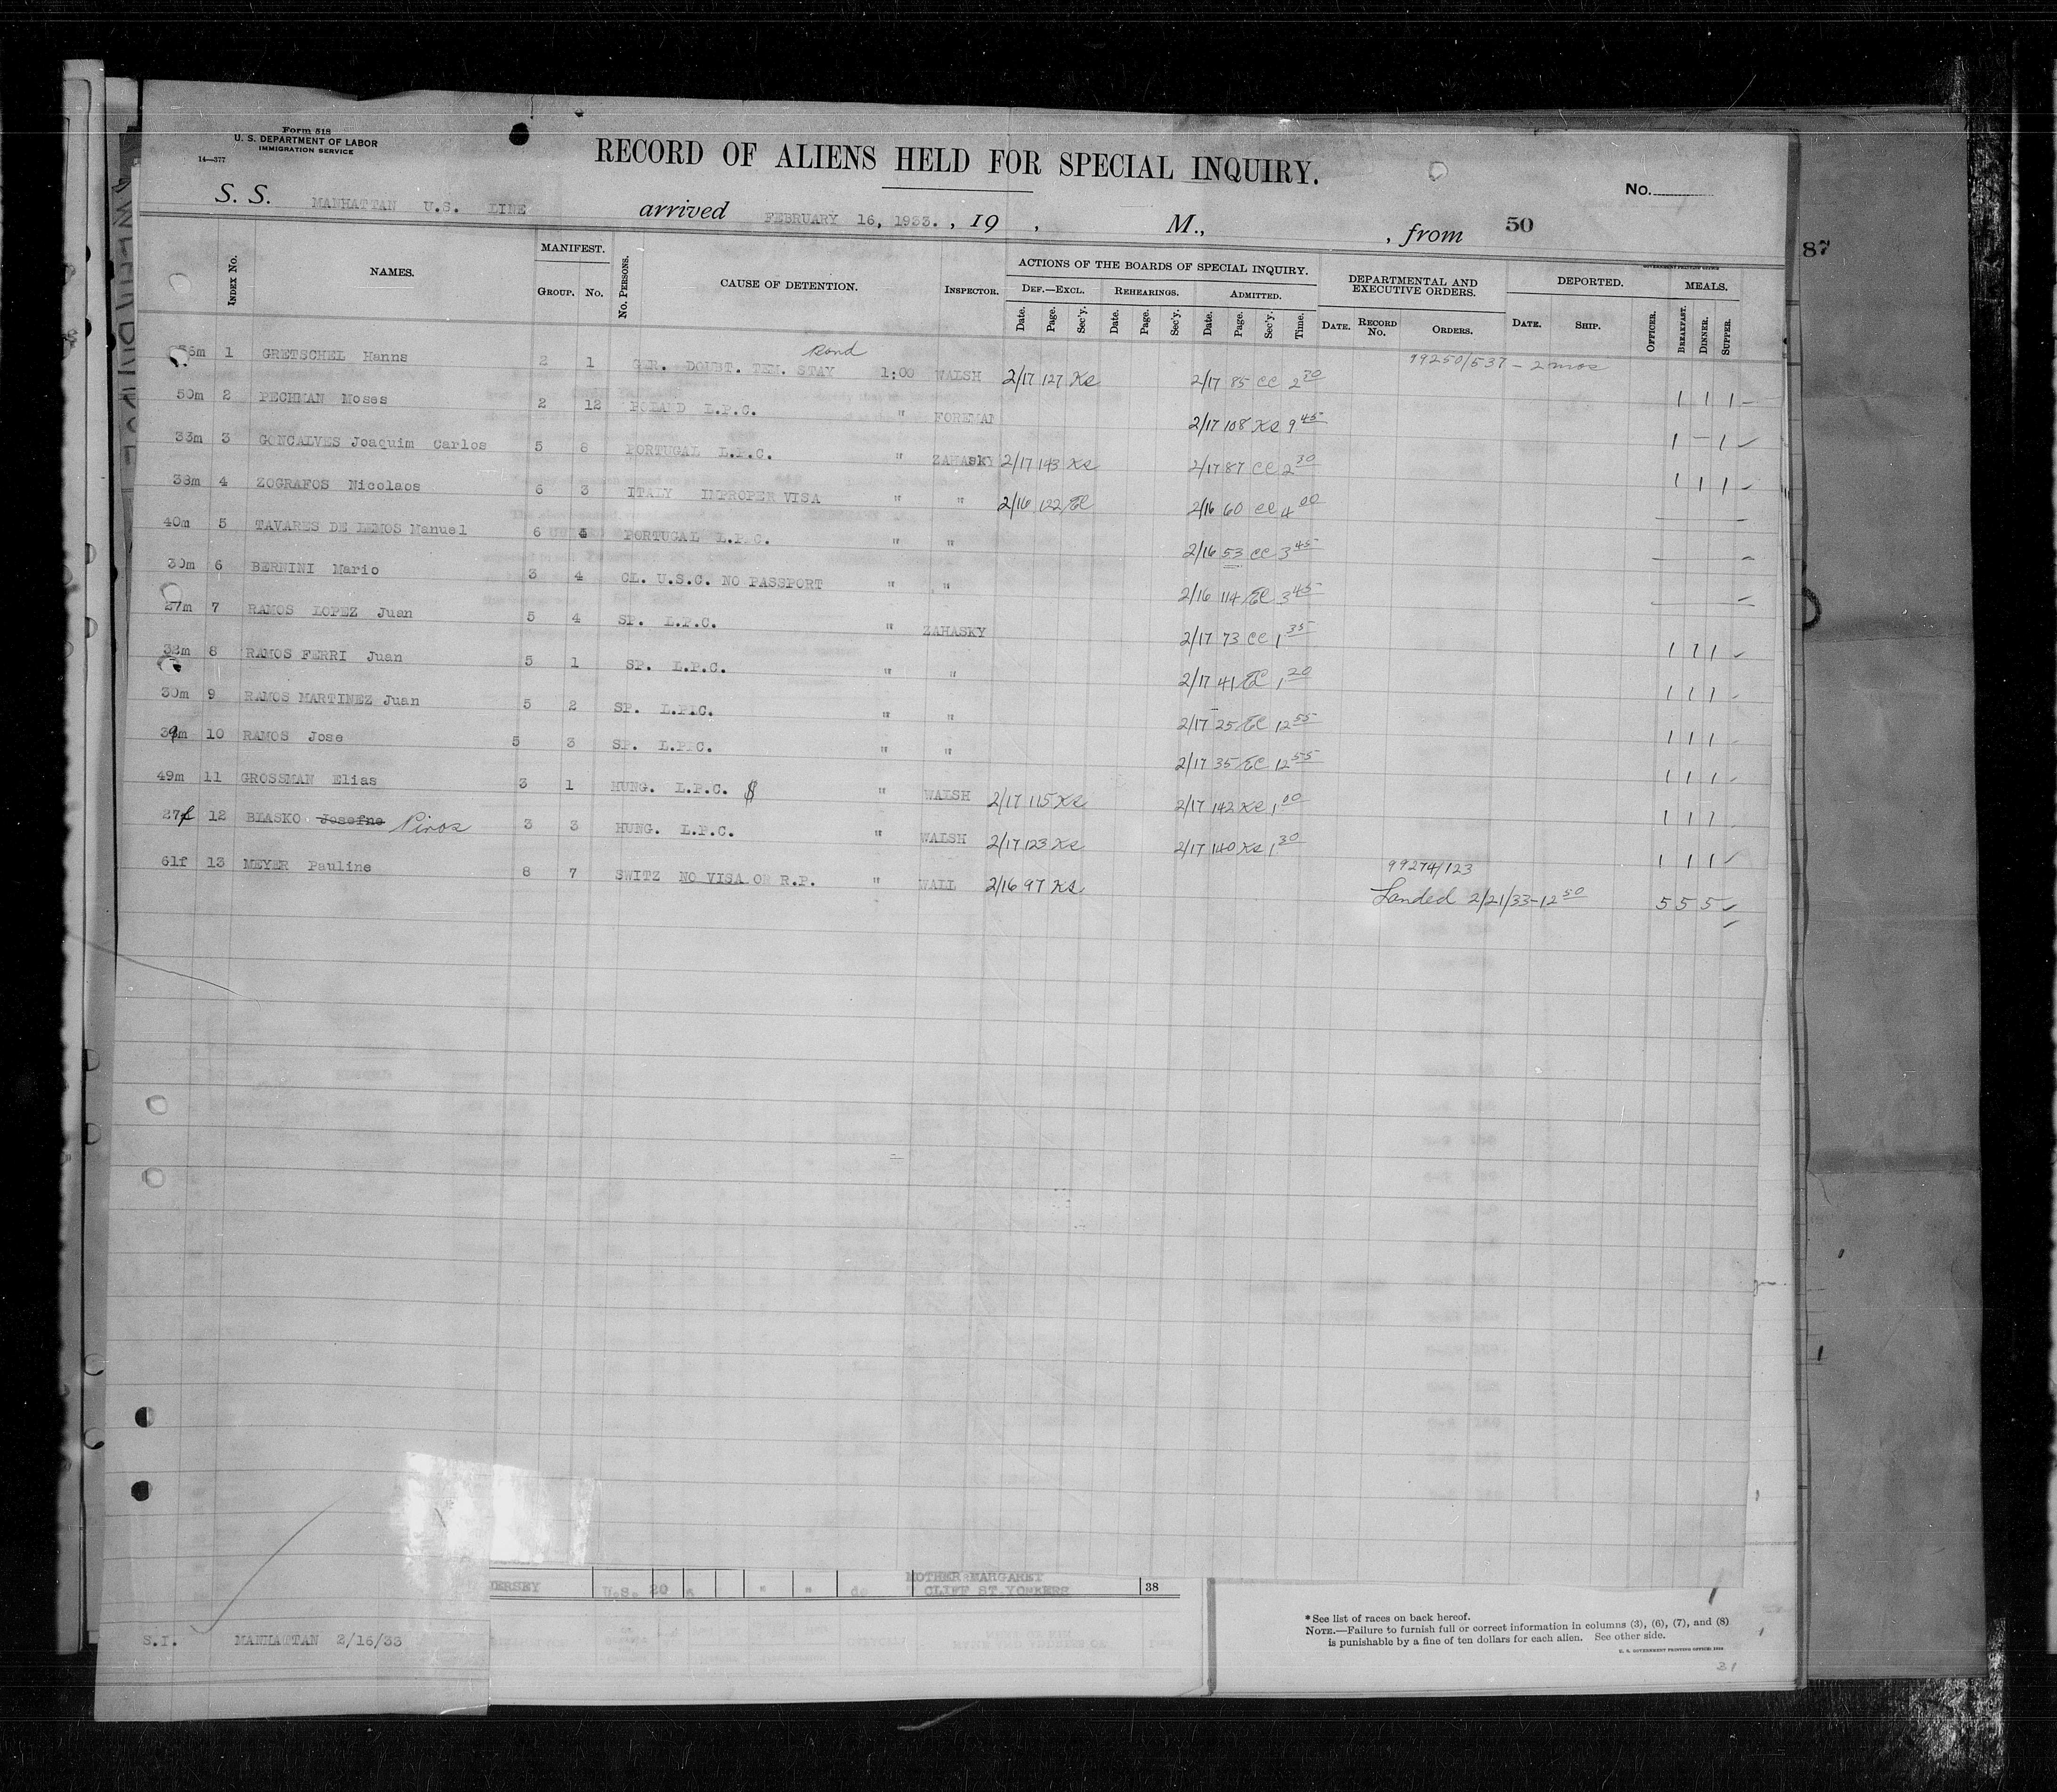 Form 518
U. S. DEPARTMENT OF LABOR
IMMIGRATION SERVICE
14—377
RECORD OF ALIENS HELD FOR SPECIAL INQUIRY.
No.
S. S. MANHATTAN U.S. LINE arrived FEBRUARY 16, 1933. , 19 , M., , from 50
87
GOVERNMENT PRINTING OFFICE
INDEX No. NAMES. MANIFEST. GROUP. No. No. PERSONS. CAUSE OF DETENTION. INSPECTOR. ACTIONS OF THE BOARDS OF SPECIAL INQUIRY. DEF.—EXCL. REHEARINGS. ADMITTED. DEPARTMENTAL AND EXECUTIVE ORDERS. DEPORTED. MEALS.
Date. Page. Sec'y. Date. Page. Sec'y. Date. Page. Sec'y. Time. DATE. RECORD No. ORDERS. DATE. SHIP. OFFICER. BREAKFAST. DINNER. SUPPER.
6m 1 GRETSCHEL Hanns 2 1 GER. DOUBT. TEM. STAY 1:00 WALSH 2/17 127 KS 2/17 85 CC 2 30 99250/537 - 2 mos 1 1 1
50m 2 PECHMAN Moses 2 12 POLAND L.P.C. " FOREMAN 2/17 108 KS 9 45 1 - 1
33m 3 GONCALVES Joaquim Carlos 5 8 PORTUGAL L.P.C. " ZAHASKY 2/17 143 KS 2/17 87 CC 2 30 1 1 1
38m 4 ZOGRAFOS Nicolaos 6 3 ITALY IMPROPER VISA " " 2/16 122 EC 2/16 60 CC 4 00
40m 5 TAVARES DE LEMOS Manuel 6 4 PORTUGAL L.P.C. " " 2/16 53 CC 3 45
30m 6 BERNINI Mario 3 4 CL. U.S.C. NO PASSPORT " " 2/16 114 EC 3 45
27m 7 RAMOS LOPEZ Juan 5 4 SP. L.P.C. " ZAHASKY 2/17 73 CC 1 35 1 1 1
32m 8 RAMOS FERRI Juan 5 1 SP. L.P.C. " " 2/17 41 EC 1 20 1 1 1
30m 9 RAMOS MARTINEZ Juan 5 2 SP. L.P.C. " " 2/17 25 EC 12 55 1 1 1
39m 10 RAMOS Jose 5 3 SP. L.P.C. " " 2/17 35 EC 12 55 1 1 1
49m 11 GROSSMAN Elias 3 1 HUNG. L.P.C. $ " WALSH 2/17 115 KS 2/17 142 KS 1 00 1 1 1
27f 12 BLASKO Josefne Piros 3 3 HUNG. L.P.C. " WALSH 2/17 123 KS 2/17 140 KS 1 30 1 1 1
61f 13 MEYER Pauline 8 7 SWITZ NO VISA OR R.P. " WALL 2/16 97 KS 99274/123
Landed 2/21/33-12 50 5 5 5
JERSEY U.S. 20 " " do MOTHER MARGARET 38
CLIFF ST. YONKERS
*See list of races on back hereof.
NOTE.—Failure to furnish full or correct information in columns (3), (6), (7), and (8)
is punishable by a fine of ten dollars for each alien. See other side.
U. S. GOVERNMENT PRINTING OFFICE
S.I. MANHATTAN 2/16/33
31